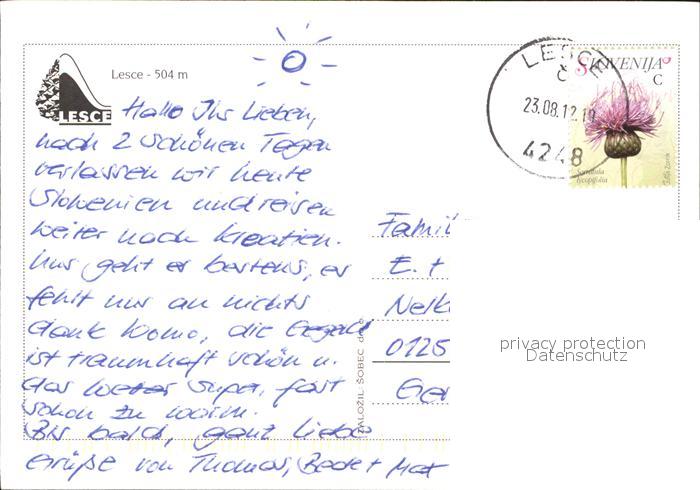 Lesce - 504 m
LESCE
LESCE
23.08.12.19
4248
SLOVENIJA
C
Serratula
lycopifolia
Hallo Ihr Lieben,
nach 2 schönen Tagen
verlassen wir heute
Slowenien und reisen
weiter nach Kroatien.
Uns geht es bestens, es
fehlt uns an nichts
dank Womo, die Gegend
ist traumhaft schön u.
das Wetter super, fast
schon zu warm.
Bis bald, ganz liebe
Grüße von Thomas,
Famil
E. +
0125
Ger
ZALOŽIL: ŠOBEC d.o.o.
privacy protection
Datenschutz